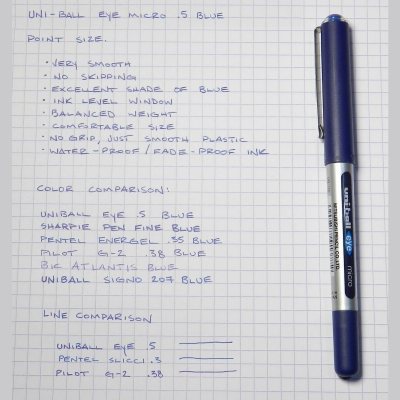 UNI-BALL EYE MICRO .5 BLUE
POINT SIZE.
· VERY SMOOTH
· NO SKIPPING
· EXCELLENT SHADE OF BLUE
· INK LEVEL WINDOW
· BALANCED WEIGHT
· COMFORTABLE SIZE
· NO GRIP, JUST SMOOTH PLASTIC
· WATER-PROOF/FADE-PROOF INK
COLOR COMPARISON:
UNIBALL EYE .5 BLUE
SHARPIE PEN FINE BLUE
PENTEL ENERGEL .35 BLUE
PILOT G-2 .38 BLUE
BIC ATLANTIS BLUE
UNIBALL SIGNO 207 BLUE
LINE COMPARISON
UNIBALL EYE .5
PENTEL SLICCI .3
PILOT G-2 .38
uniball eye micro